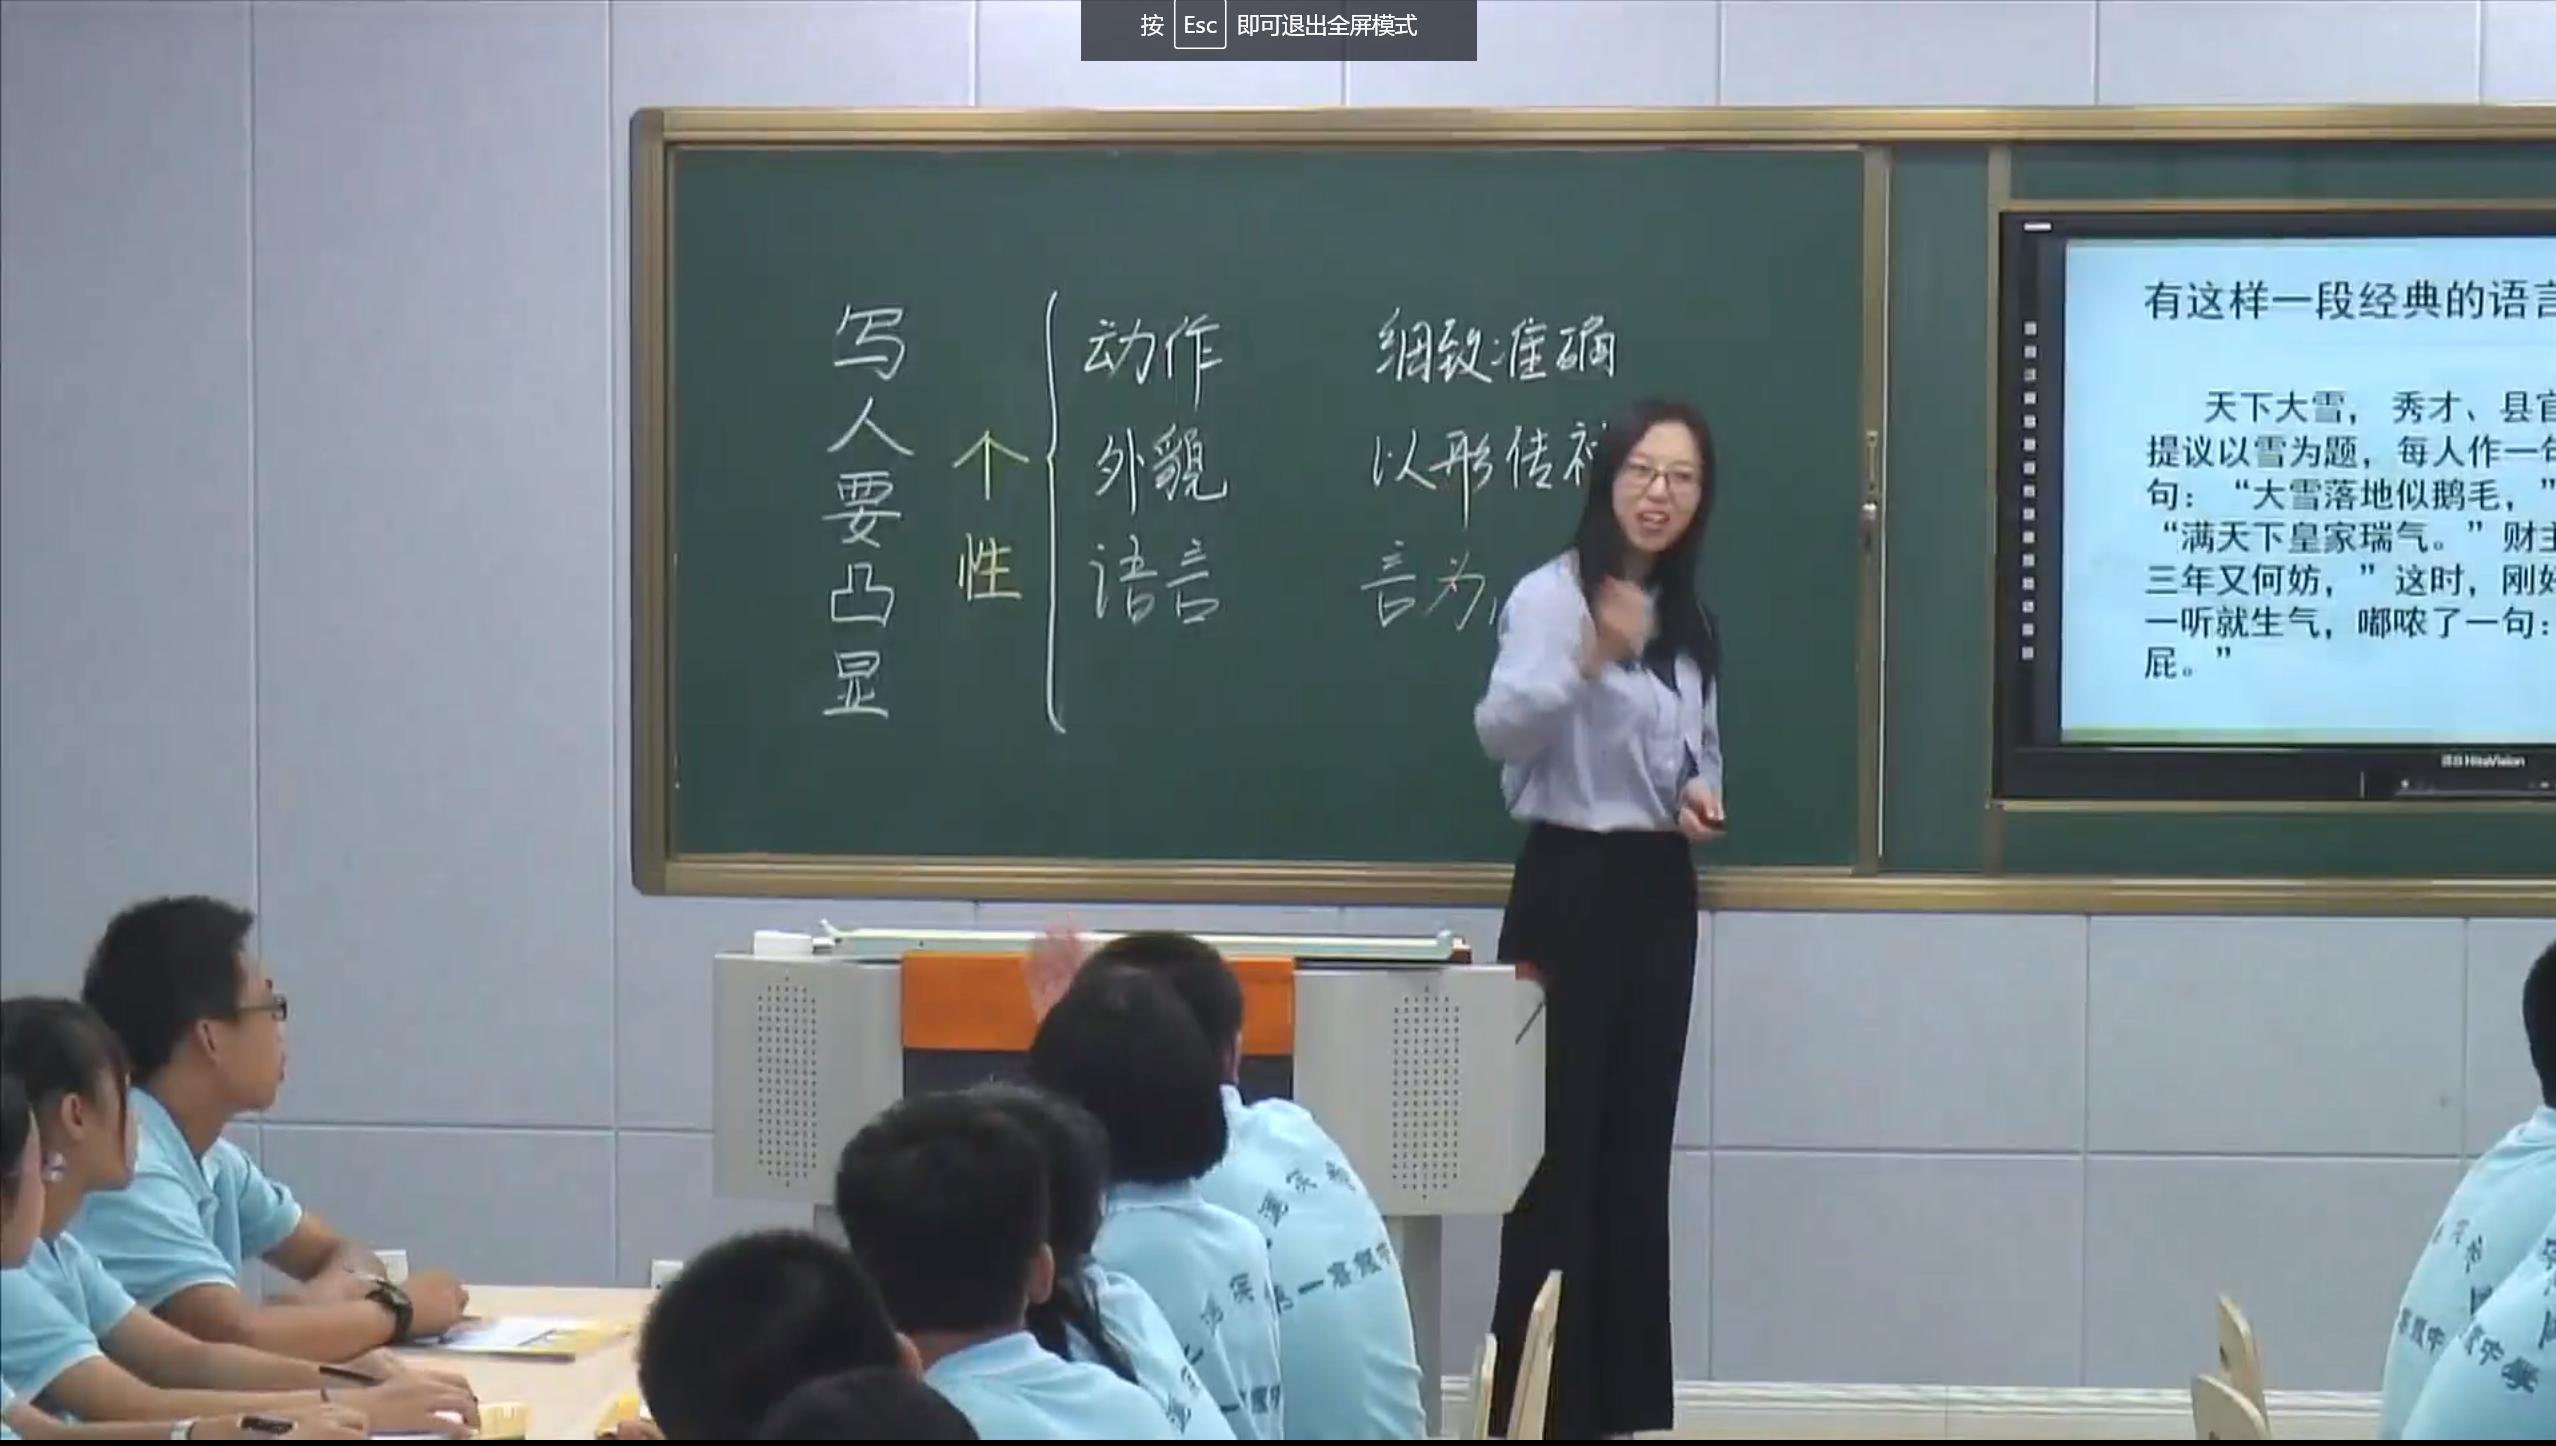 按 Esc 即可退出全屏模式
写人要凸显
个性
动作 细致准确
外貌 以形传
语言 言为
有这样一段经典的语言
天下大雪， 秀才、县官
提议以雪为题，每人作一句
句：“大雪落地似鹅毛，”
“满天下皇家瑞气。”财主
三年又何妨，”这时，刚好
一听就生气，嘟哝了一句：
屁。”
HiteVision
第一高级中